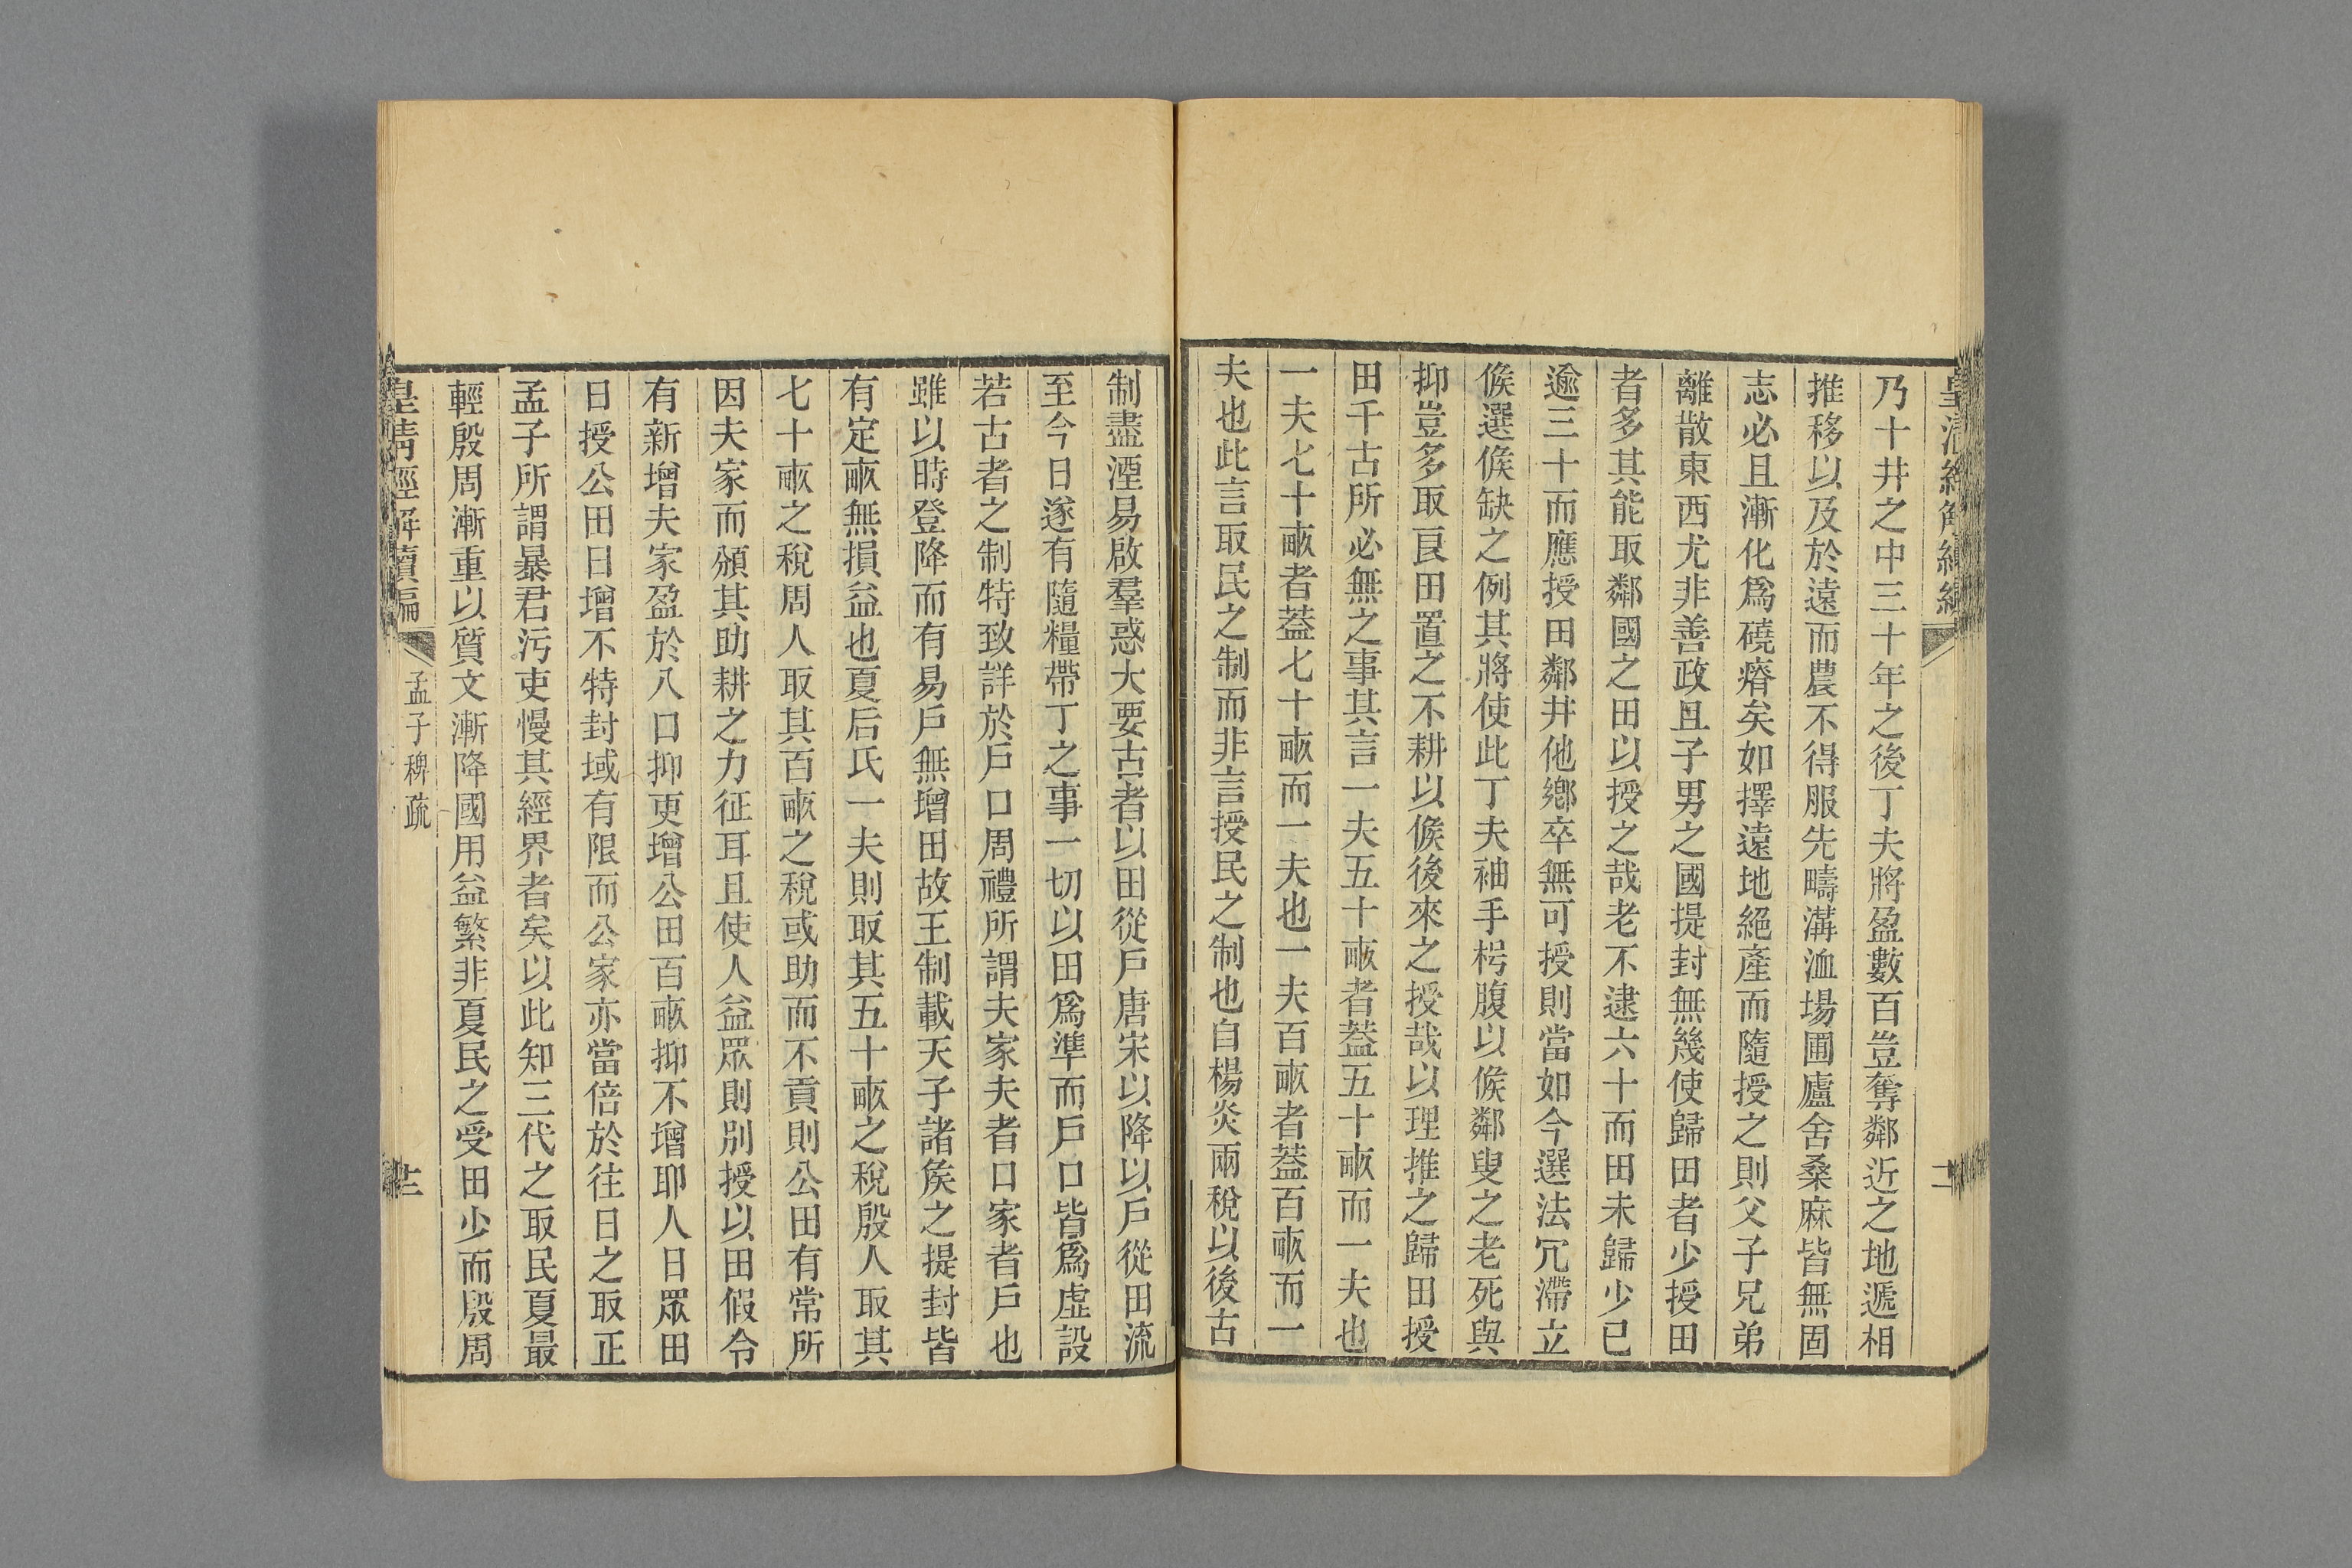 乃十井之中三十年之後丁夫將盈數百豈奪鄰近之地遞相
推移以及於遠而農不得服先疇溝洫場圃廬舍桑麻皆無固
志必且漸化爲磽瘠矣如擇遠地絕產而隨授之則父子兄弟
離散東西尤非善政且子男之國提封無幾使歸田者少授田
者多其能取鄰國之田以授之哉老不逮六十而田未歸少已
逾三十而應授田鄰井他鄉卒無可授則當如今選法冗滯立
候選候缺之例其將使此丁夫袖手枵腹以候鄰叟之老死與
抑豈多取良田置之不耕以候後來之授哉以理推之歸田授
田千古所必無之事其言一夫五十畝者葢五十畝而一夫也
一夫七十畝者葢七十畝而一夫也一夫百畝者葢百畝而一
夫也此言取民之制而非言授民之制也自楊炎兩稅以後古
制盡湮易啟羣惑大要古者以田從戶唐宋以降以戶從田流
至今日遂有隨糧帶丁之事一切以田爲準而戶口皆爲虛設
若古者之制特致詳於戶口周禮所謂夫家夫者口家者戶也
雖以時登降而有易戶無增田故王制載天子諸矦之提封皆
有定畝無損益也夏后氏一夫則取其五十畝之稅殷人取其
七十畝之稅周人取其百畝之稅或助而不貢則公田有常所
因夫家而頒其助耕之力征耳且使人益眾則別授以田假令
有新增夫家盈於八口抑更增公田百畝抑不增耶人日眾田
日授公田日增不特封域有限而公家亦當倍於往日之取正
孟子所謂暴君污吏慢其經界者矣以此知三代之取民夏最
輕殷周漸重以質文漸降國用益繁非夏民之受田少而殷周
皇清經解續編
孟子稗疏